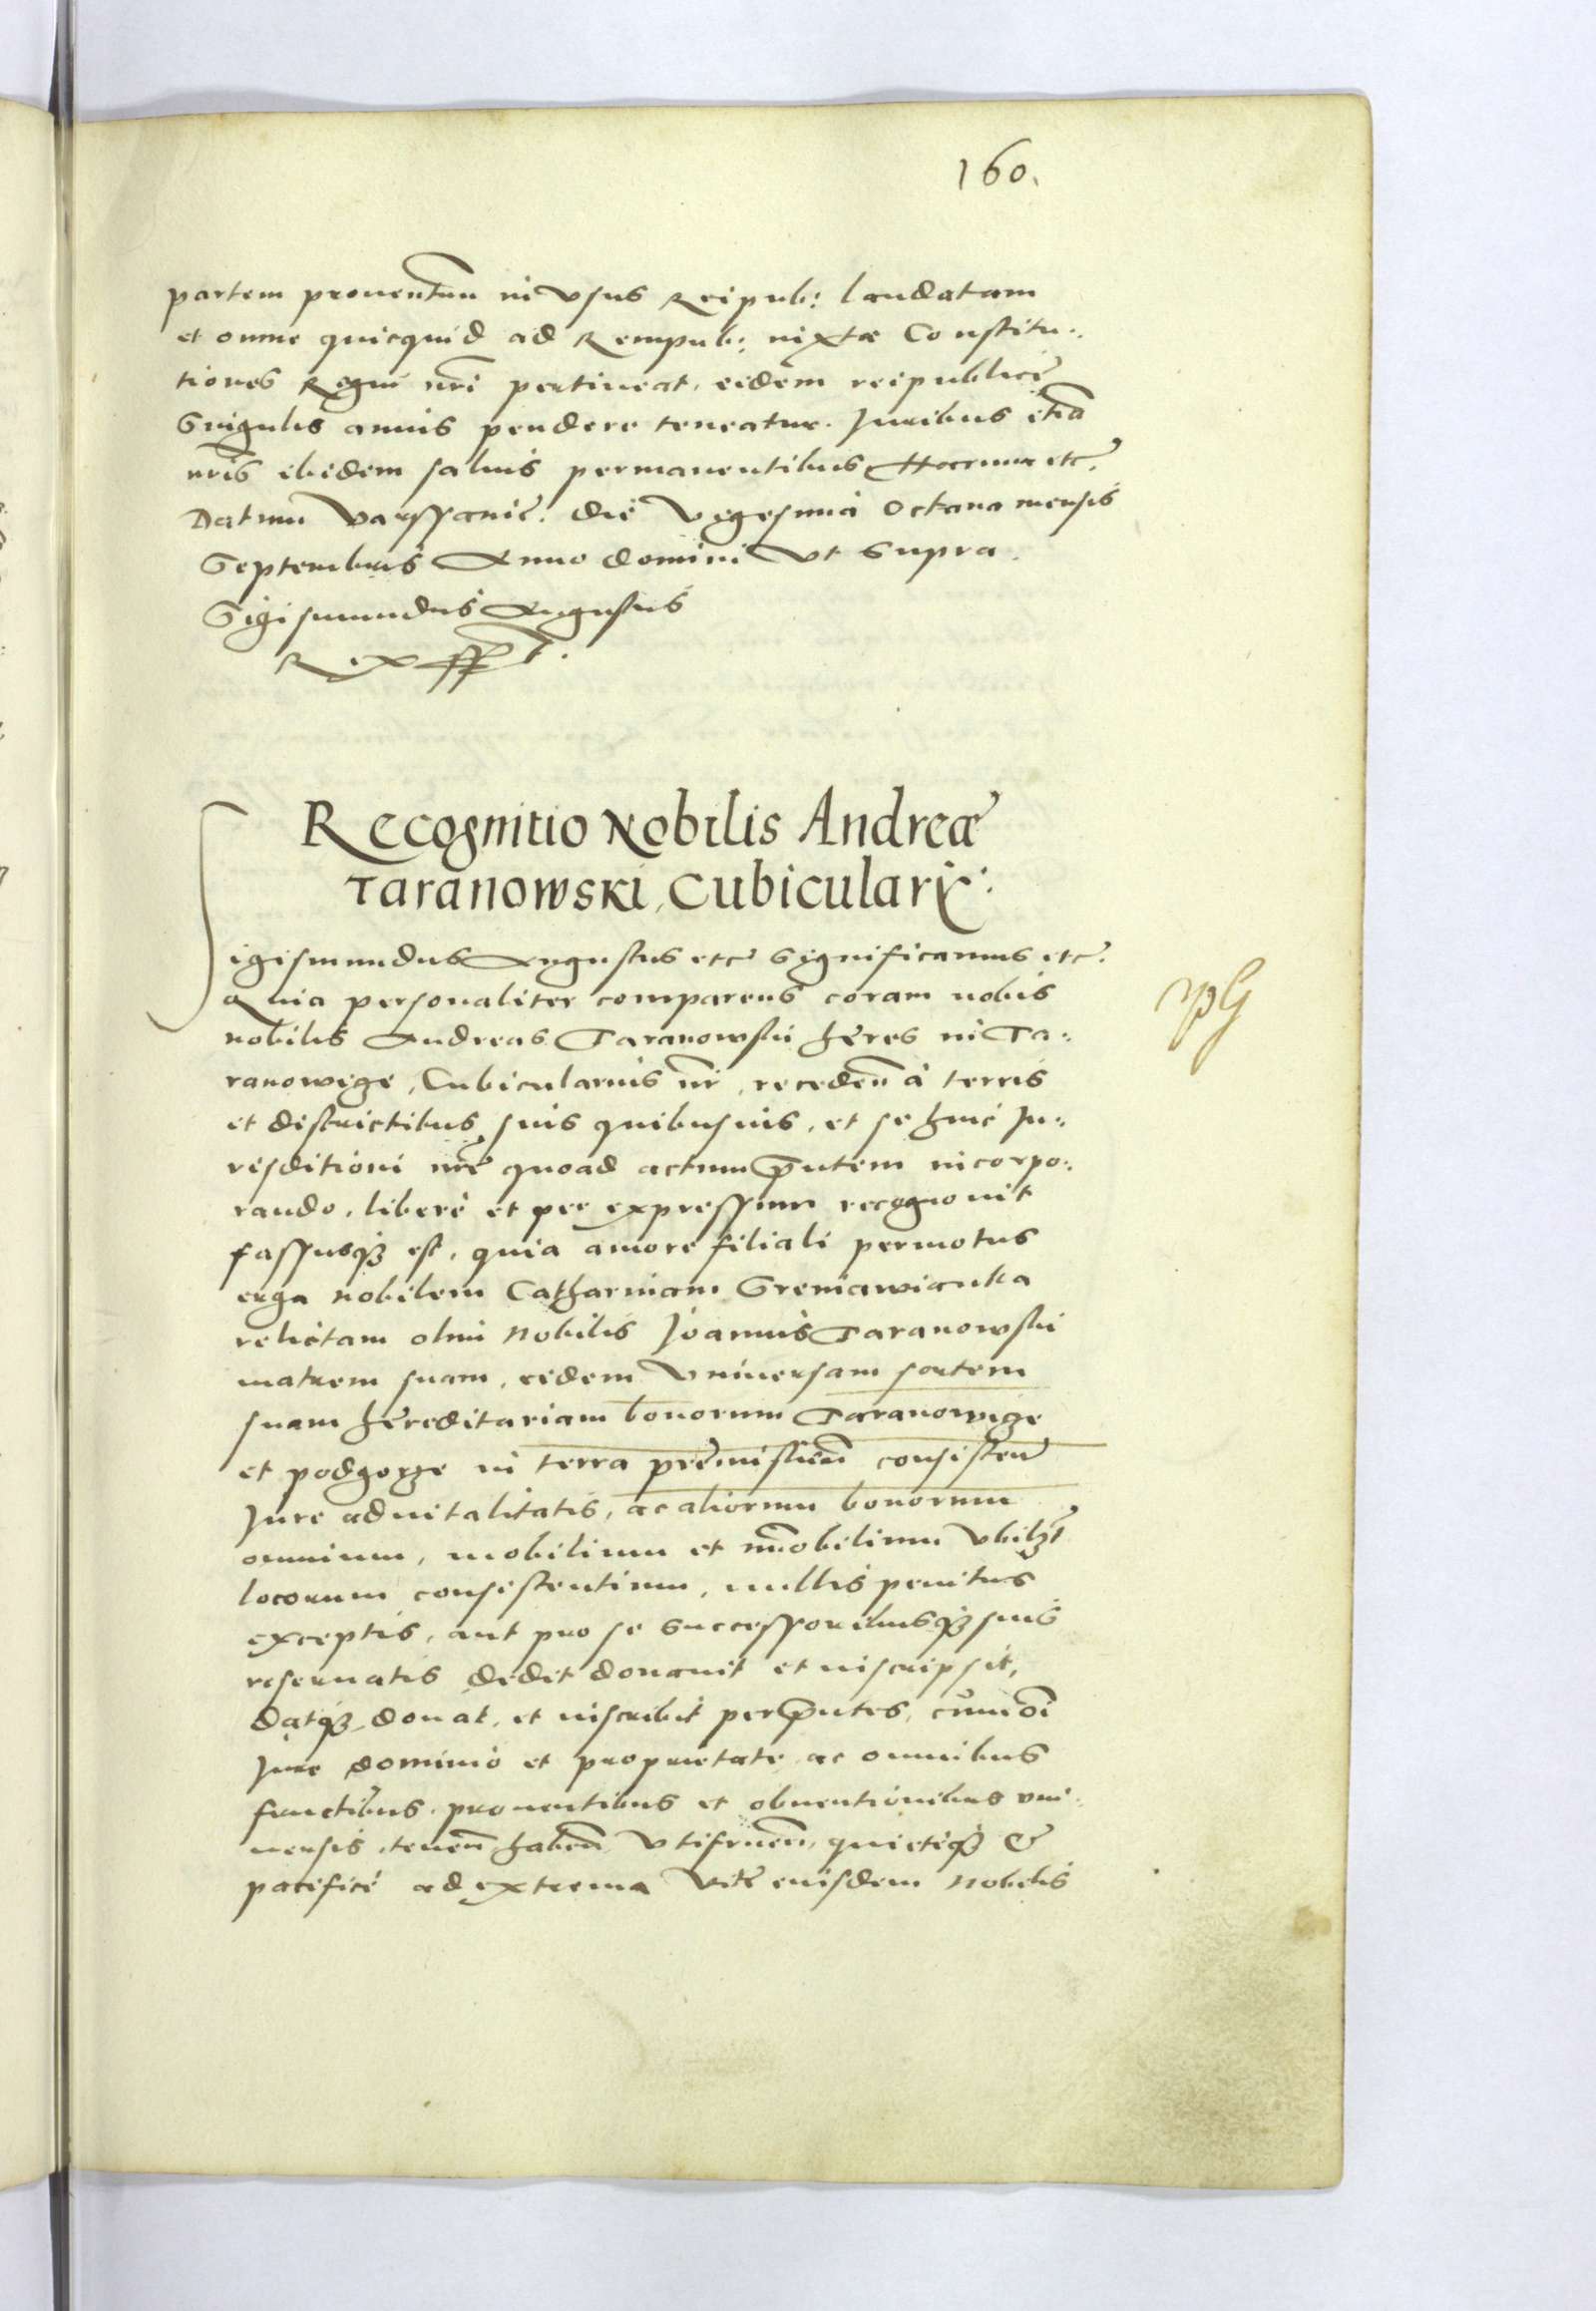 160.
partem prouentuu in Vsus Reipub: laudatam
et omne quicquid ad Rempub: iuxta Constitu:
tiones Regni nri pertineat, eidem reipublice
Singulis annis pendere teneatur. Juribus etia
nris ibidem saluis permanentibus Harum etc.
Datum Varssauie. die Vigesima Octaua mensis
Septembris Anno domini Vt Supra.
Sigismundus Augustus
Rex sspt.
Recognitio Nobilis Andreæ
Taranowski, Cubicularij:
Sigismundus Augustus etc Significamus etc.
Quia personaliter comparens coram nobis
nobilis Andreas Taranowski heres in Ta:
ranowicze, Cubicularius nr, receden a terris
et districtibus suis quibusuis, et se huic Ju:
risditioni nre quoad actum pntem incorpo:
rando, libere et per expressum recognouit
fassusq3 est, quia amore filiali permotus
erga nobilem Catharinam Sreniawianka
relictam olim Nobilis Joannis Taranowski
matrem suam, eidem Vniuersam sortem
suam hereditariam bonorum Taranowicze
et podgorze in terra premislien consisten
Jure aduitalitatis, ac aliorum bonorum
omnium, mobilium et immobilium Vbilzt
locorum consistentium, nullis penitus
exceptis, aut pro se Successoribusq3 suis
reseruatis dedit donauit et inscripsit,
datq3 donat, et inscribit per pntes, cum oi
Jure dominio et proprietate ac omnibus
fructibus, prouentibus et obuentionibus vni:
uersis, tenen haben Vtifruen, quieteq3 &
pacifice ad extrema Vite eiusdem Nobilis